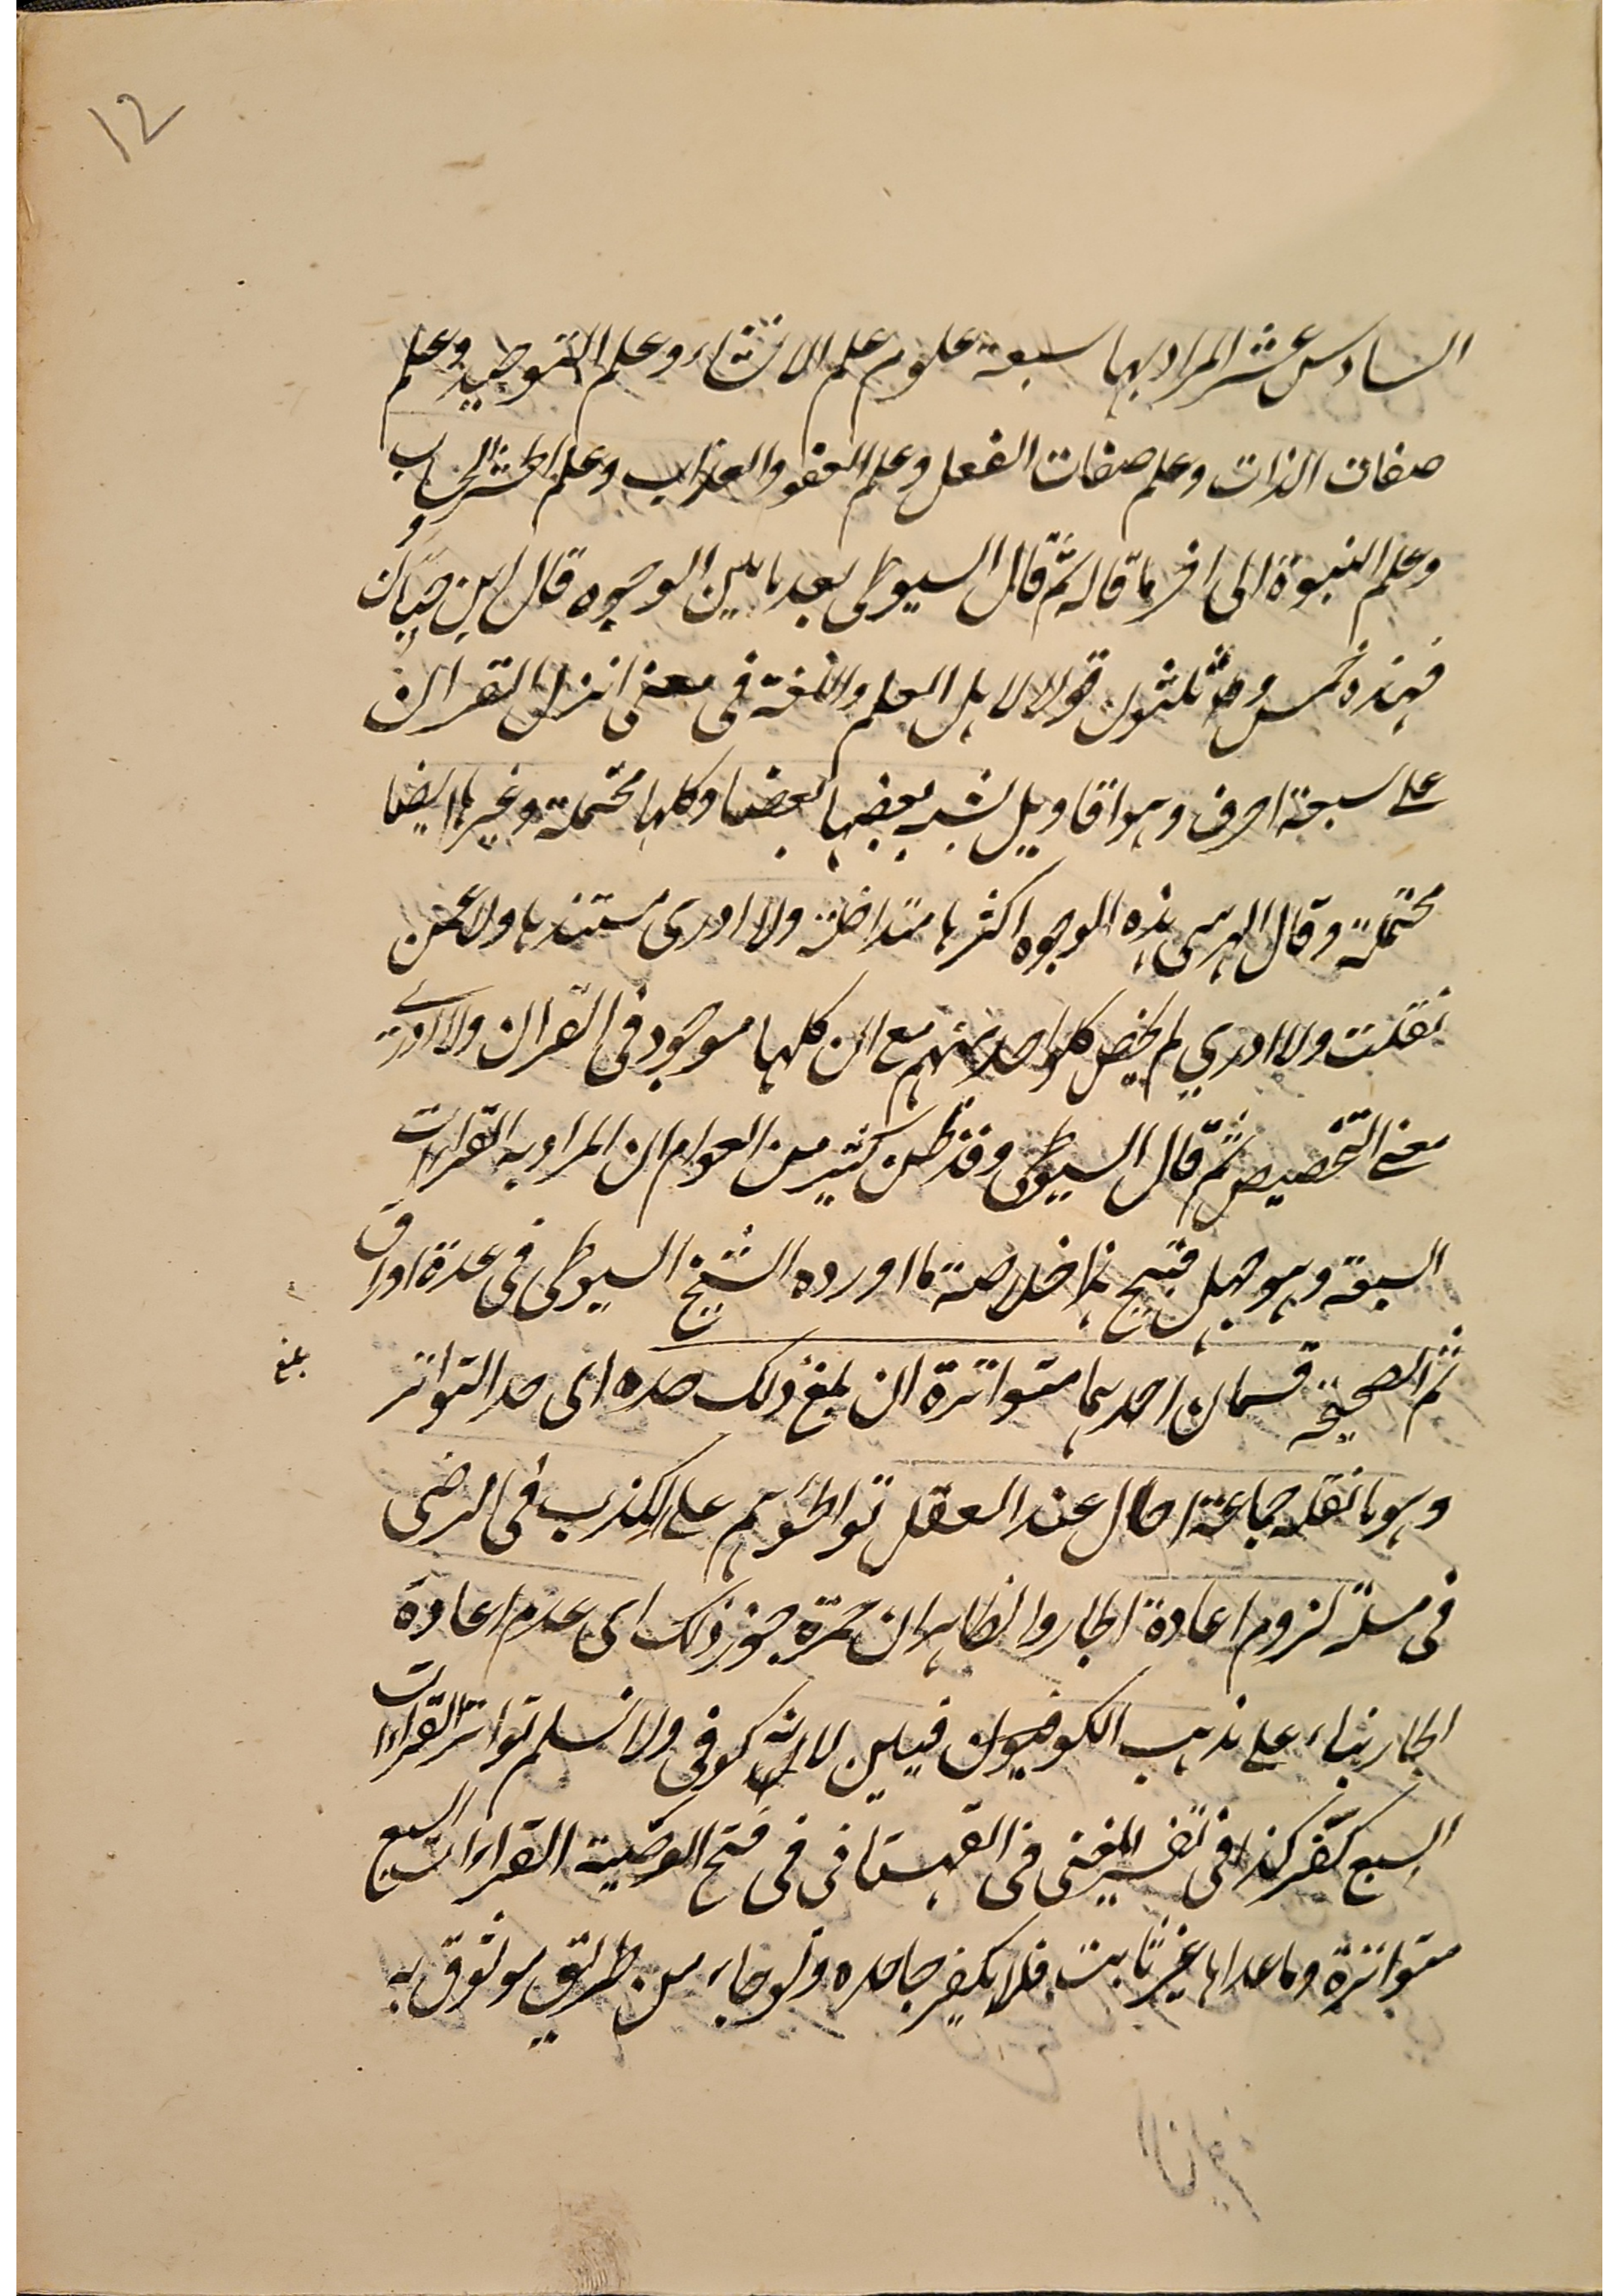 12
السادس عشر المراد بها سبعة علوم علم الانشاء وعلم التوحيد وعلم
صفات الذات وعلم صفات الفعل وعلم العفو والعذاب وعلم الحشر والحساب
وعلم النبوة الى اخر ما قاله ثم قال السيوطى بعد ما بين الوجوه قال ابن حبان
فهذه خمس وثلثون قولا لاهل العلم واللغة فى معنى انزل القران
على سبعة احرف وهو اقاويل يشبه بعضها بعضا وكلها محتملة وغيرها ايضا
محتملة وقال المرسى هذه الوجوه اكثرها متداخلة ولا ادرى مستندها ولا عمن
نقلت ولا ادري لم يخص كل واحد منهم مع ان كلها موجود فى القران ولا ادرى
معنى التخصيص ثم قال السيوطى وقد ظن كثير من العوام ان المراد به القراءات
السبعة وهو جهل قبيح هذا خلاصة ما اورده الشيخ السيوطى فى عدة اوراق
ثم الصحيحة قسمان احدهما متواترة ان بلغ ذلك حده اى حد التواتر
بلغ
وهو ما نقله جماعة احال عند العقل تواطؤهم على الكذب فى الرضى
فى مسئلة لزوم اعادة الجار والظاهر ان حمزة جوز ذلك اى عدم اعادة
الجار بناء على مذهب الكوفيين لانه كوفى ولا نسلم تواتر القراءات
السبع كفر كذا فى تفسير المغنى فى القهستانى فى فتح الوصية القراءات السبع
متواترة وما عداها غير ثابت فلا يكفر جاحده ولو جاء من طريق موثوق به